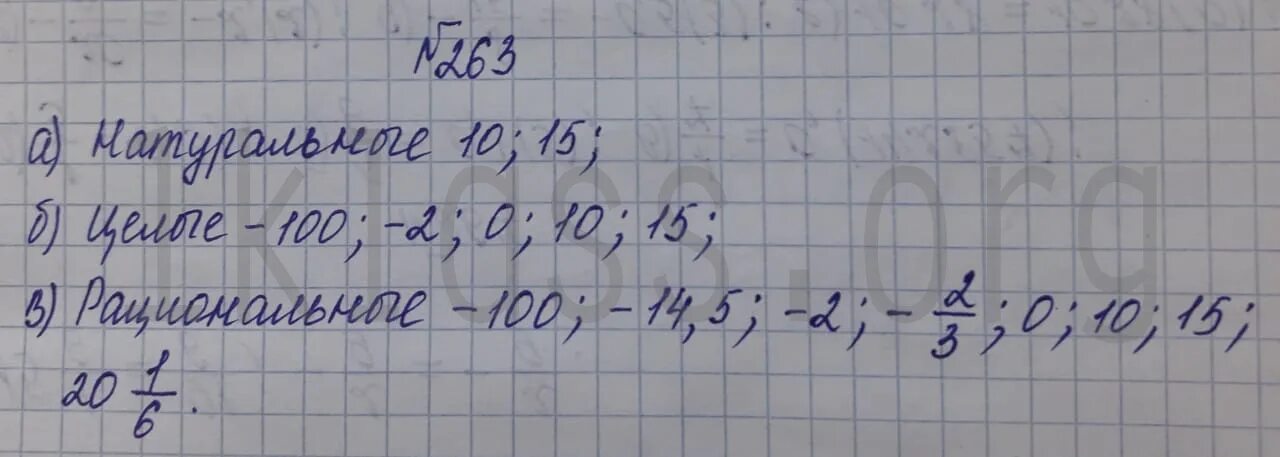 №263
а) Натуральные 10; 15;
б) Целые -100; -2; 0; 10; 15;
в) Рациональные -100; -14,5; -2; -2/3; 0; 10; 15;
20 1/6.
lklass.org